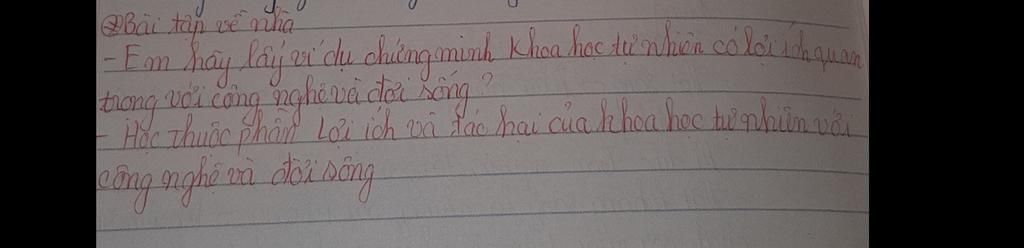 ⊛ Bài tập về nhà
- Em hãy lấy ví dụ chứng minh khoa học tự nhiên có lợi ích quan
trọng với công nghệ và đời sống?
- Học thuộc phần lợi ích và tác hại của khoa học tự nhiên với
công nghệ và đời sống